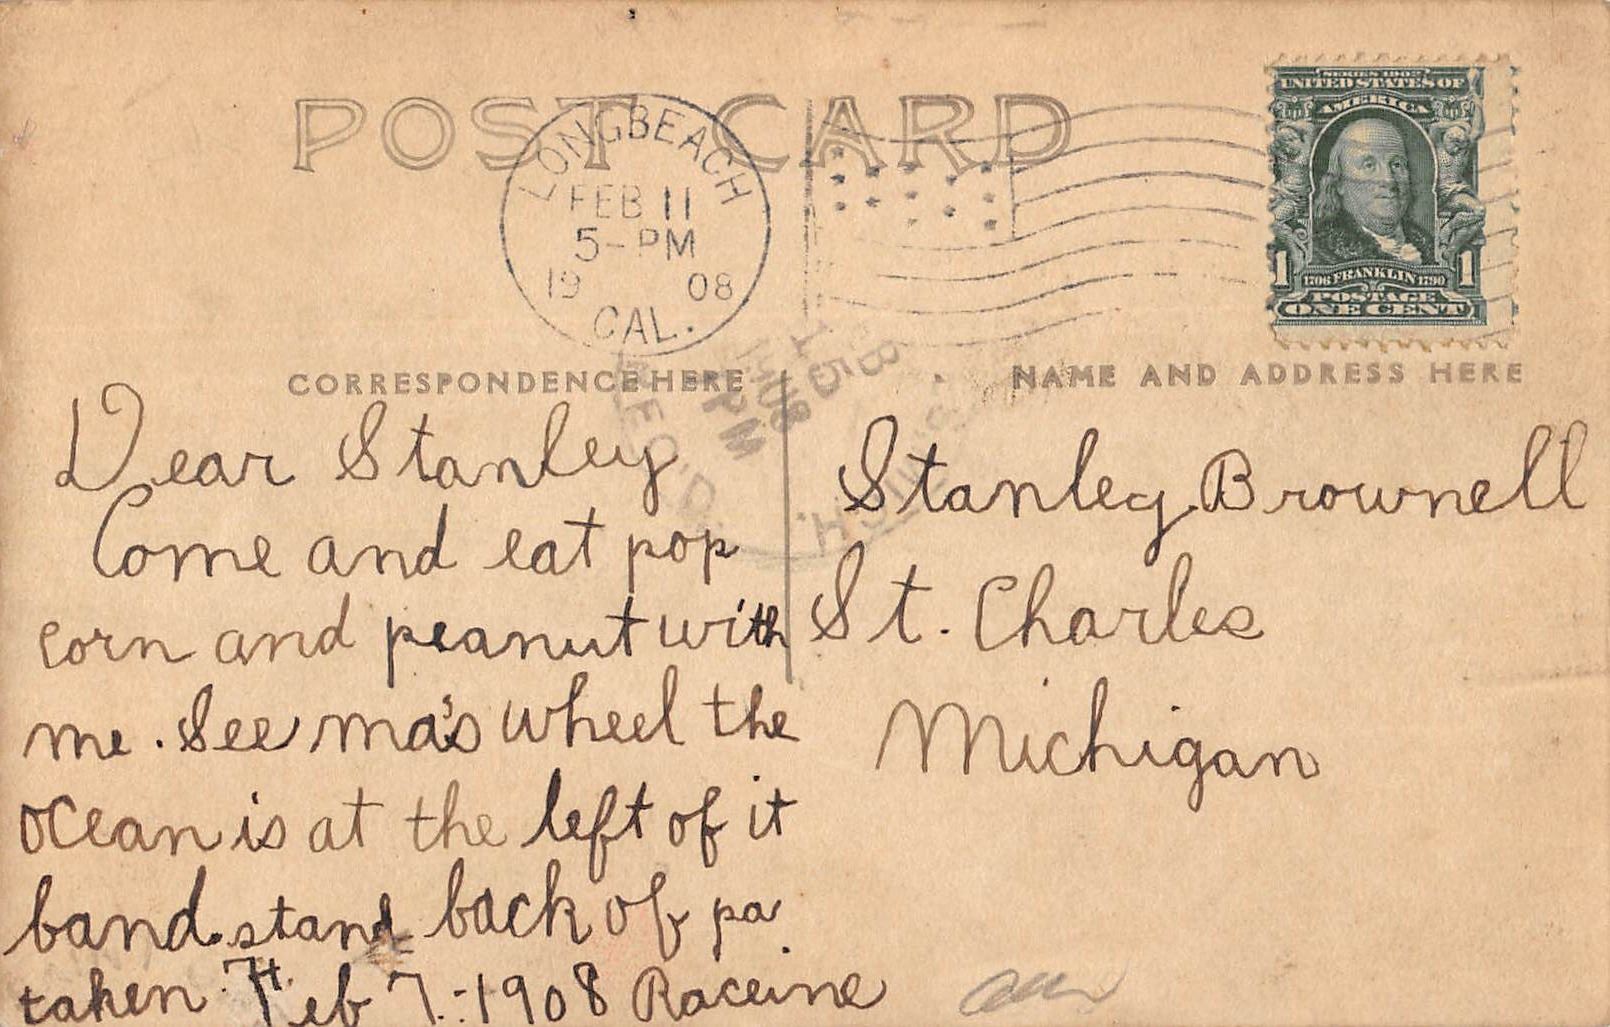 POST CARD
LONG BEACH
FEB 11
5-PM
19 08
CAL.
SERIES 1902
UNITED STATES OF
AMERICA
1 1706 FRANKLIN 1790 1
POSTAGE
ONE CENT
CORRESPONDENCE HERE
NAME AND ADDRESS HERE
15
PM
REC'D.
Dear Stanley
Come and eat pop
corn and peanut with
me. See ma's wheel the
ocean is at the left of it
band stand back of pa
taken Feb 7.-1908 Raceine
Stanley Brownell
St. Charles
Michigan